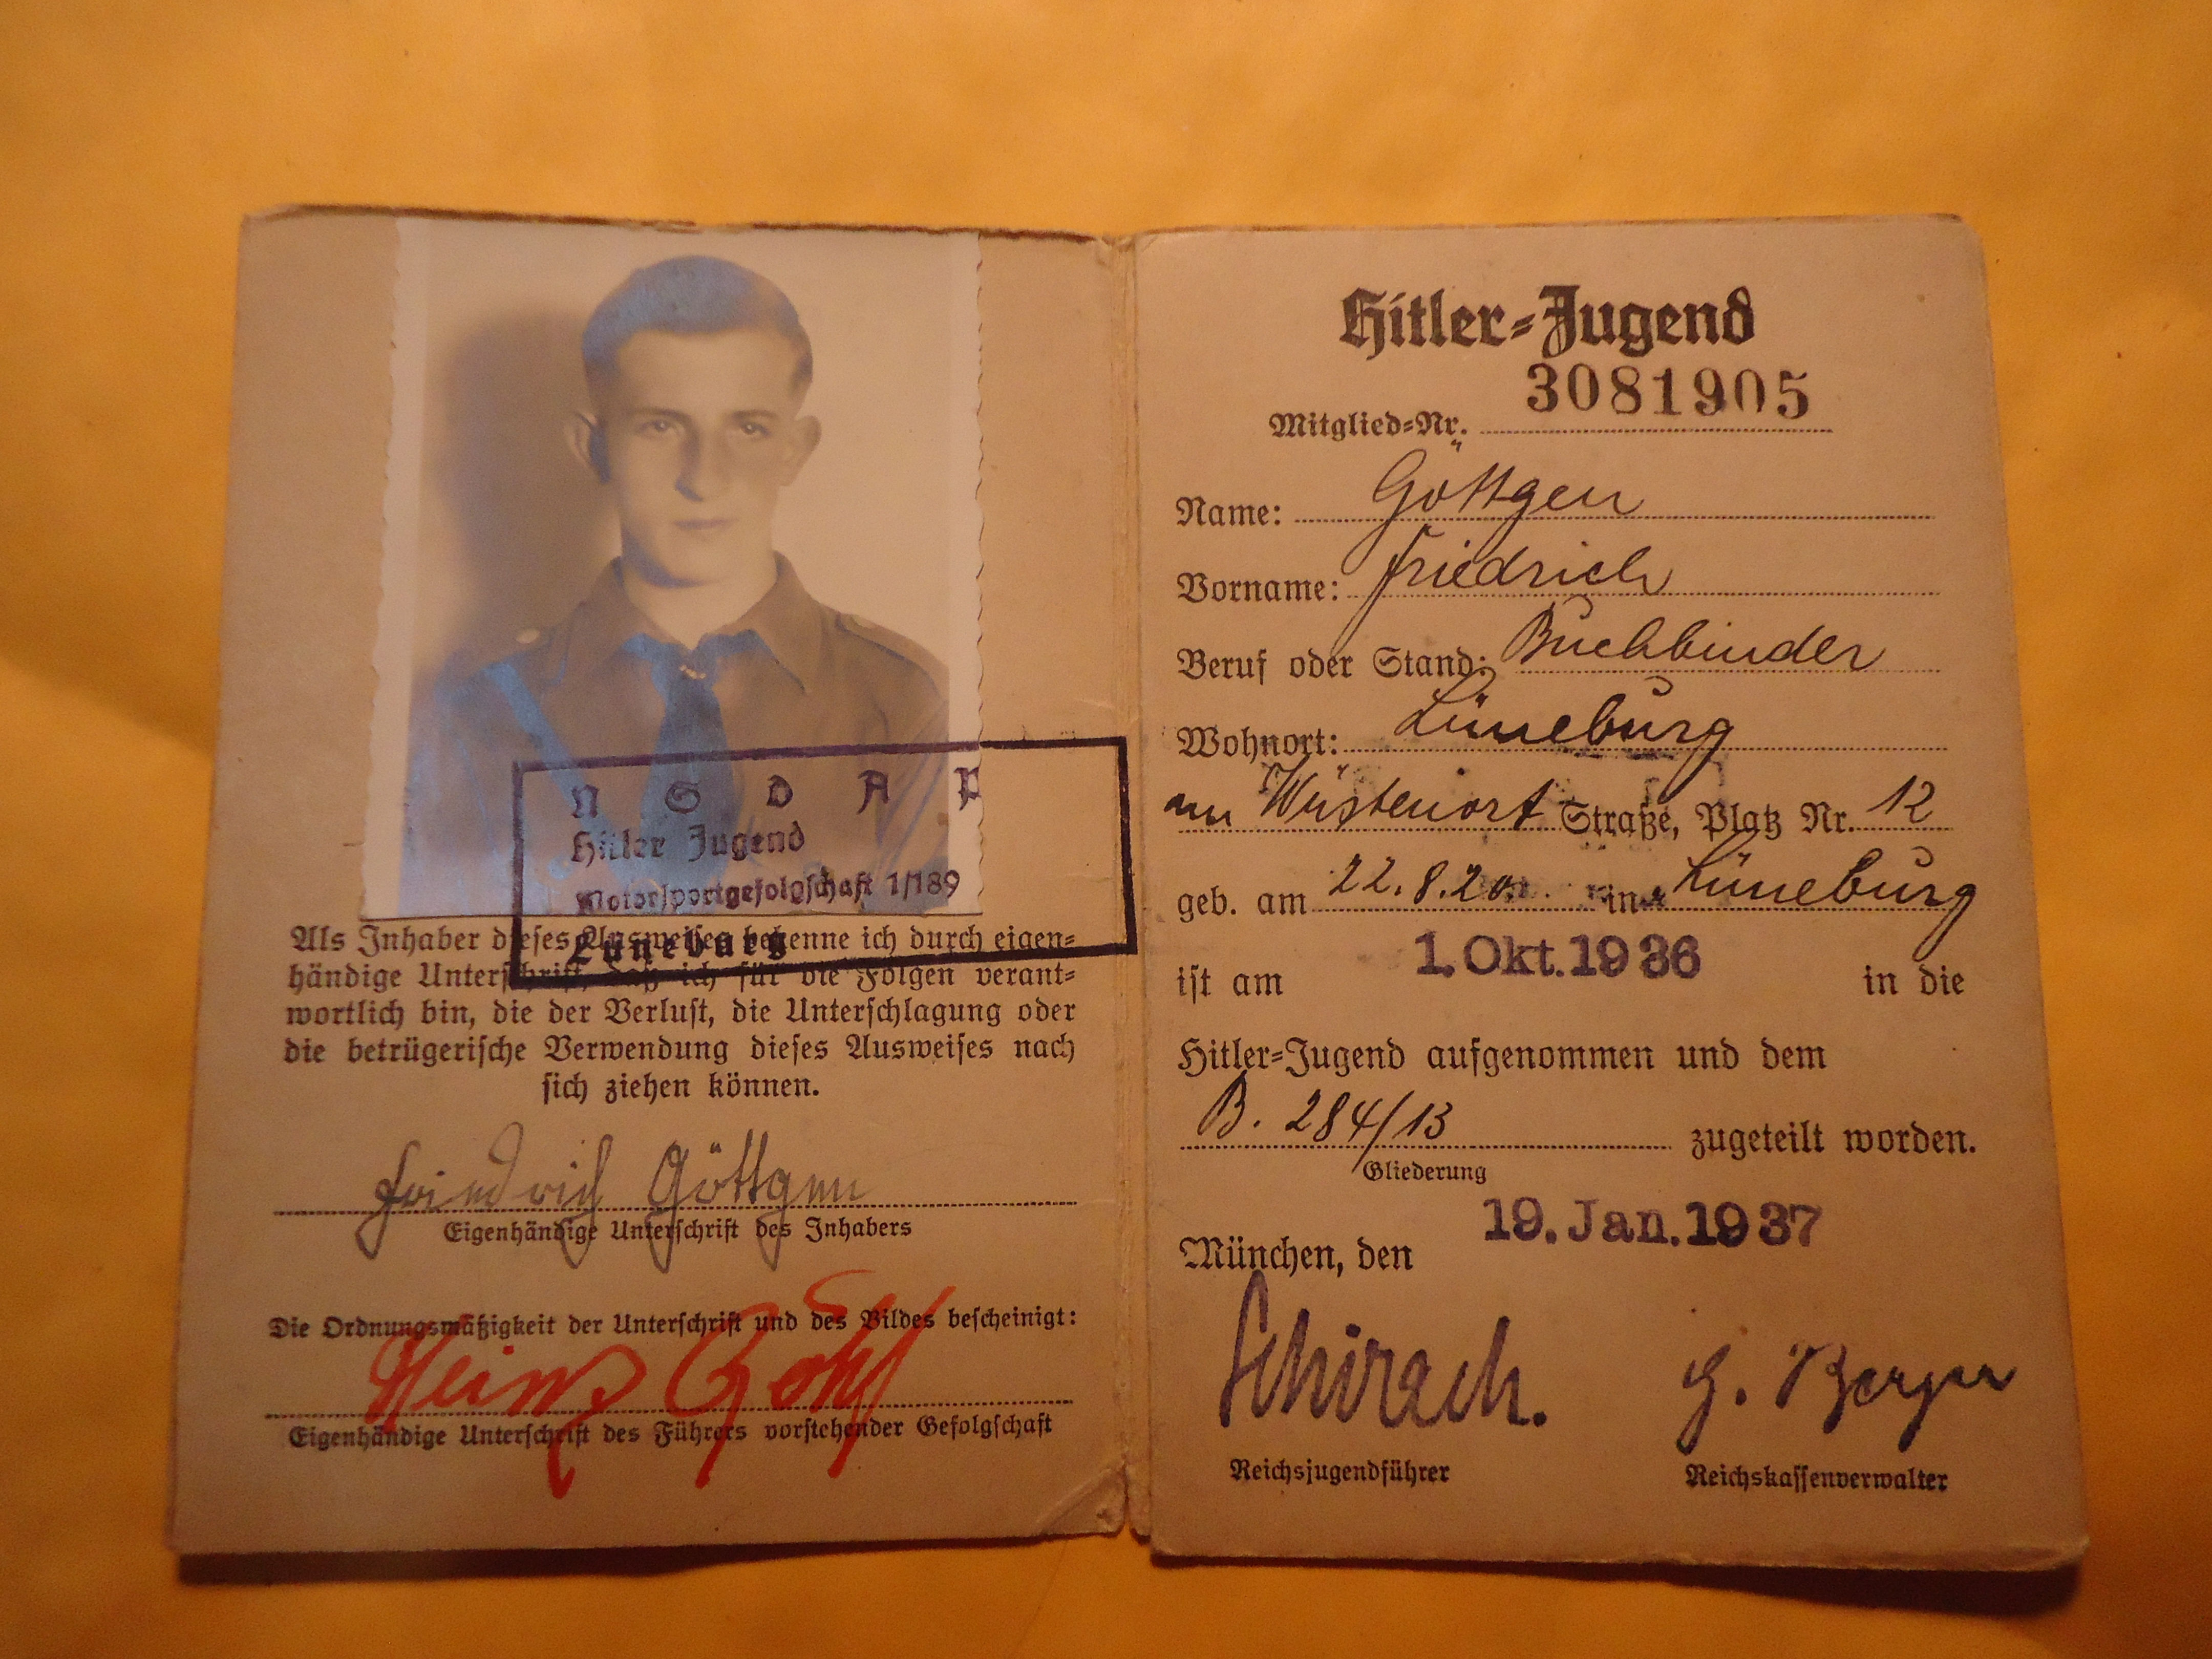 N S D A P
Hitler Jugend
Motorsportgefolgschaft 1/189
Lüneburg
Als Inhaber dieses Ausweises bekenne ich durch eigen=
händige Unterschrift, daß ich für die Folgen verant=
wortlich bin, die der Verlust, die Unterschlagung oder
die betrügerische Verwendung dieses Ausweises nach
sich ziehen können.
Friedrich Göttgen
Eigenhändige Unterschrift des Inhabers
Die Ordnungsmäßigkeit der Unterschrift und des Bildes bescheinigt:
Heinz
Eigenhändige Unterschrift des Führers vorstehender Gefolgschaft
Hitler=Jugend
Mitglied=Nr. 3081905
Name: Göttgen
Vorname: Friedrich
Beruf oder Stand: Buchbinder
Wohnort: Lüneburg
am Wüstenort Straße, Platz Nr. 12
geb. am 22.8.20 in Lüneburg
ist am 1. Okt. 1936 in die
Hitler=Jugend aufgenommen und dem
B. 284/13 zugeteilt worden.
Gliederung
München, den 19. Jan. 1937
Schirach. G. Berger
Reichsjugendführer Reichskassenverwalter